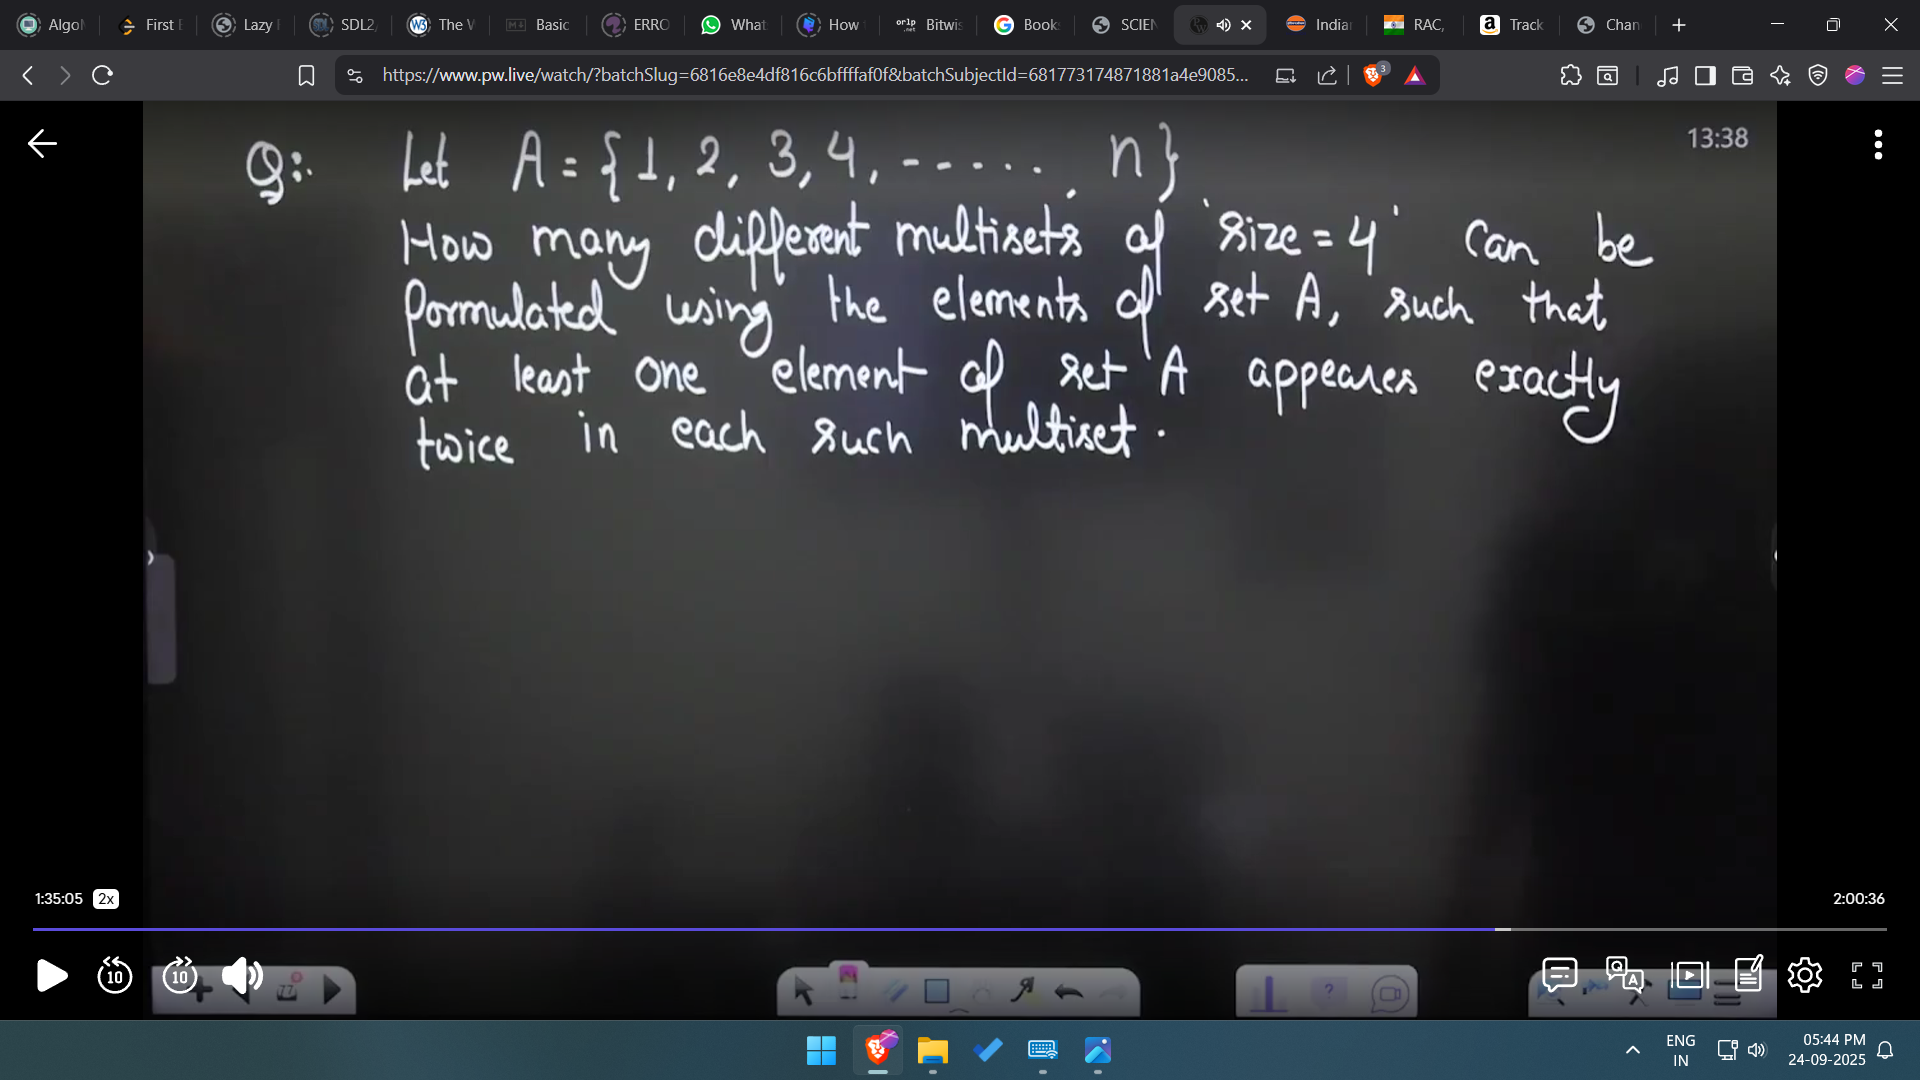 Algo
First E
Lazy
SDL2
The W
Basic
ERRO
What
How
Bitwis
Book
SCIEN
India
RAC,
Track
Chan
https://www.pw.live/watch/?batchSlug=6816e8e4df816c6bffffaf0f&batchSubjectId=681773174871881a4e9085...
3
13:38
Q:. Let A = {1, 2, 3, 4, ------, n}
How many different multisets of 'size = 4' can be
formulated using the elements of set A, such that
at least one element of set A appeares exactly
twice in each such multiset.
1:35:05 2x
2:00:36
10 10
77
ENG
IN
05:44 PM
24-09-2025